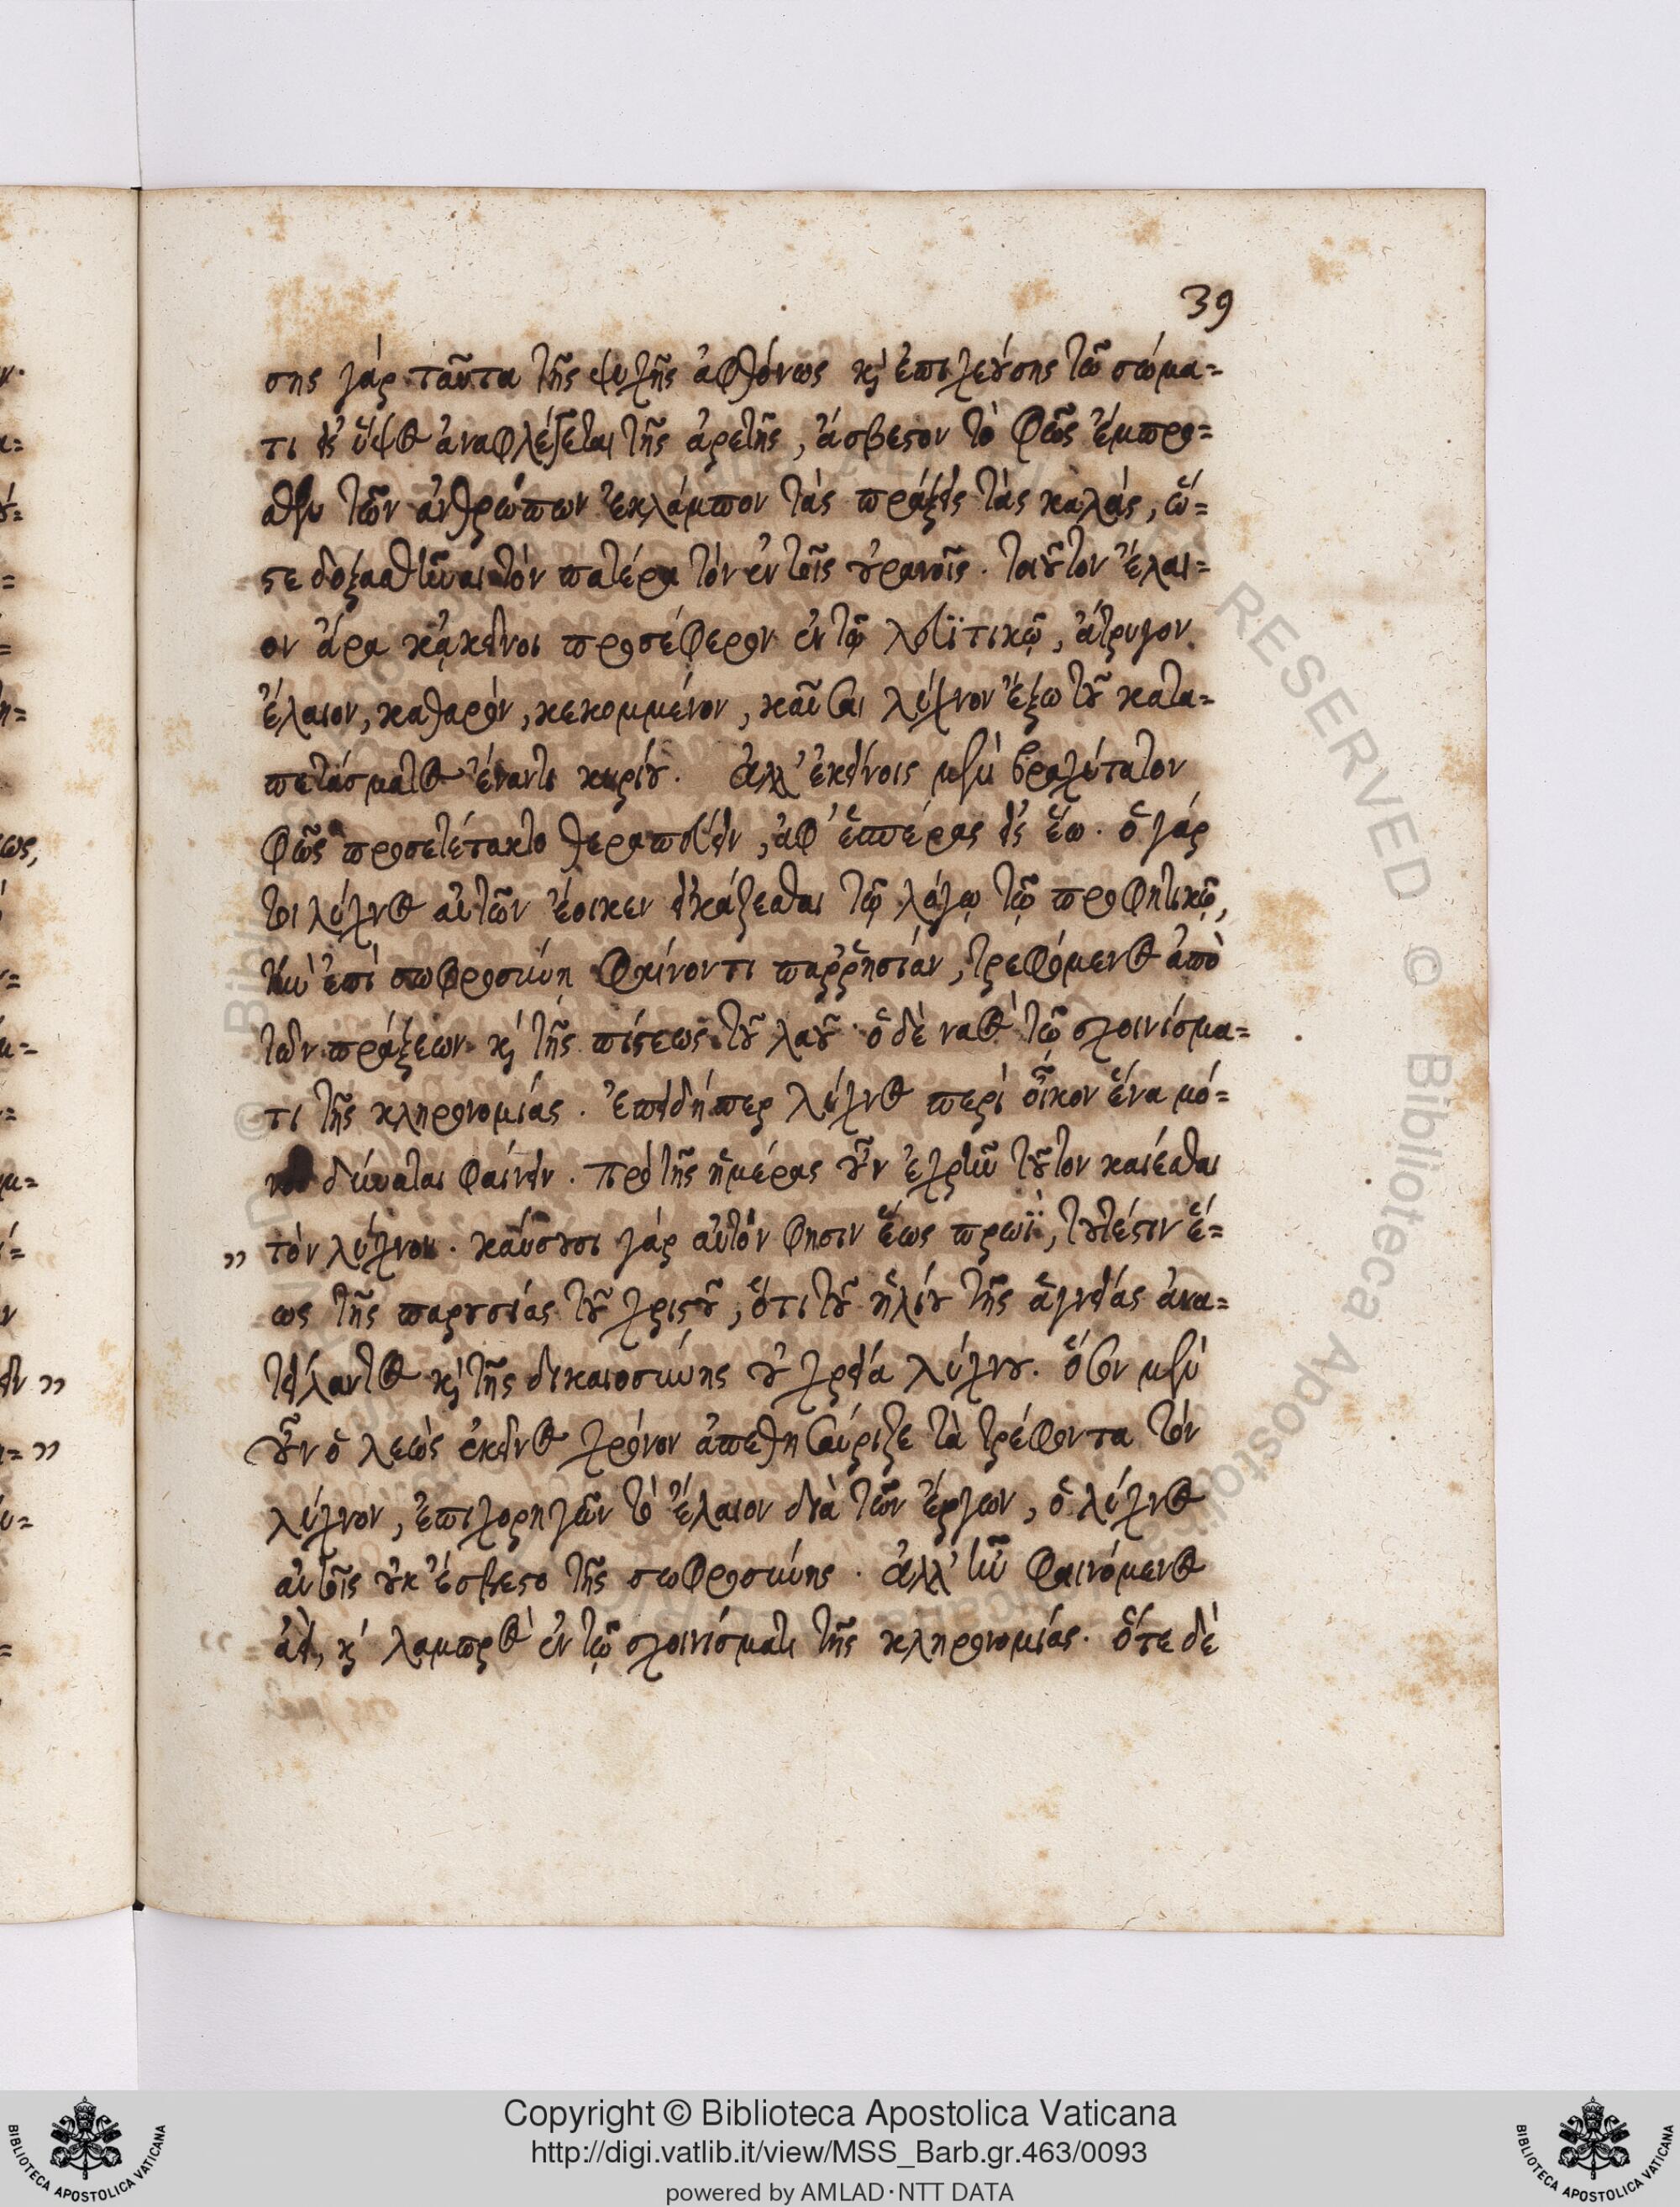 39
σης γάρ ταῦτα τῆς ψυχῆς ἀφθόνως κὶ ἐπιχεούσης τῷ σώμα=
τι εἰς ὕψος ἀναφλέξεται τῆς ἀρετῆς, ἄσβεστον τὸ φῶς ἔμπρο=
σθεν τῶν ἀνθρώπων ἐκλάμπον τὰς πράξεις τὰς καλάς, ὥ=
στε δοξασθῆναι τὸν πατέρα τὸν ἐν τοῖς οὐρανοῖς. τοιοῦτον ἔλαι=
ον ἄρα κᾀκεῖνοι προσέφερον ἐν τῷ λευϊτικῷ, ἄτρυγον
ἔλαιον, καθαρόν, κεκομμένον, καῦσαι λύχνον ἔξω τοῦ κατα=
πετάσματος ἔναντι κυρίου. ἀλλ' ἐκείνοις μὲν βραχύτατον
φῶς προσετέτακτο θεραπεύειν, ἀφ' ἑσπέρας εἰς ἕω. ὁ γάρ
τοι λύχνος αὐτῶν ἔοικεν εἰκάζεσθαι τῷ λόγῳ τῷ προφητικῷ,
τὴν ἐπὶ σωφροσύνῃ φαίνοντι παῤῥησίαν, τρεφόμενος ἀπὸ
τῶν πράξεων κὶ τῆς πίστεως τοῦ λαοῦ· ὁ δὲ ναὸς τῷ σχοινίσμα=
τι τῆς κληρονομίας. ἐπειδήπερ λύχνος περὶ οἶκον ἕνα μό=
νον δύναται φαίνειν. πρὸ τῆς ἡμέρας οὖν ἐχρῆν τοῦτον καίεσθαι
„ τὸν λύχνον. καύσουσι γάρ αὐτόν φησιν ἕως πρωΐ, τουτέστιν ἕ=
ως τῆς παρουσίας τοῦ χριστοῦ, ὅτι τοῦ ἡλίου τῆς ἁγνείας ἀνα=
τείλαντος κὶ τῆς δικαιοσύνης οὐ χρεία λύχνου. ὅσον μὲν
οὖν ὁ λεὼς ἐκεῖνος χρόνον ἀπεθησαύριζε τὰ τρέφοντα τὸν
λύχνον, ἐπιχορηγῶν τὸ ἔλαιον διὰ τῶν ἔργων, ὁ λύχνος
αὐτοῖς οὐκ ἔσβεστο τῆς σωφροσύνης. ἀλλ' ἦν φαινόμενος
ἀεί, κὶ λαμπρὸς ἐν τῷ σχοινίσματι τῆς κληρονομίας. ὅτε δὲ
Copyright © Biblioteca Apostolica Vaticana
http://digi.vatlib.it/view/MSS_Barb.gr.463/0093
powered by AMLAD·NTT DATA
BIBLIOTECA APOSTOLICA VATICANA
BIBLIOTECA APOSTOLICA VATICANA